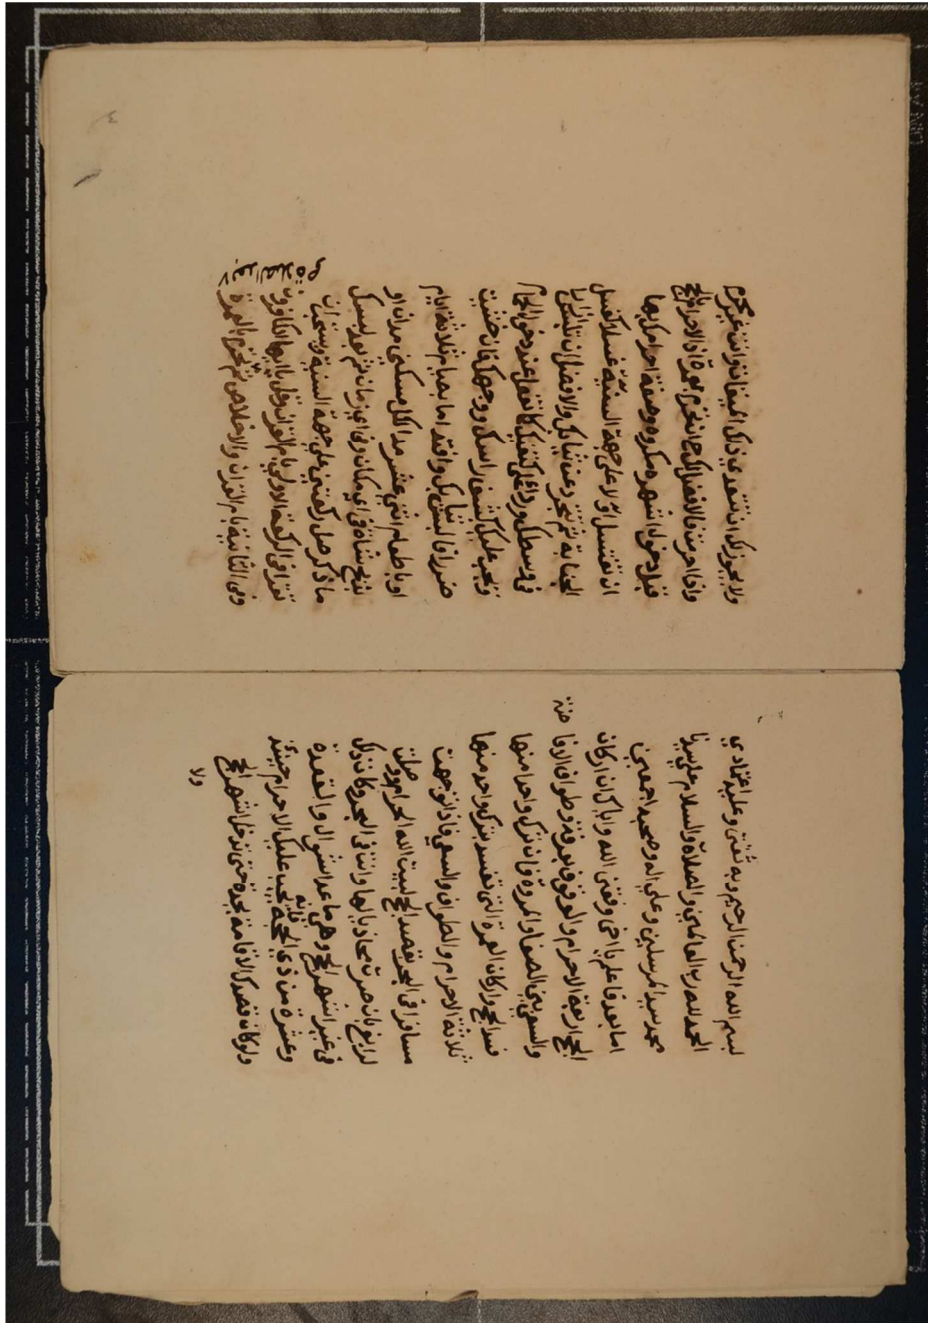 بسم الله الرحمن الرحيم وبه ثقتي وعليه اعتمادي
الحمد لله رب العالمين والصلاة والسلام على سيدنا
محمد سيد المرسلين وعلى اله وصحبه اجمعين
اما بعد فاعلم يا اخي وفقني الله واياك ان اركان
الحج اربعة الاحرام والوقوف بعرفة وطواف الافا
ضة
والسعي بين الصفا والمروة فان ترك واحدا منها
فسد الحج واركان العمرة التي تفسد بترك واحد منها
ثلاثة الاحرام والطواف والسعي فاذا توجهت
مسافرا في البحر بقصد الحج لبيت الله الحرام ووصلت
لرابغ بان صرت محاذيا لها وانت في البحر وكان ذلك
في غير اشهر الحج وهي ما عدا شوال والقعدة
وعشرة من ذي الحجة فانه يجب عليك الاحرام حينئذ
ولو كان قصدك الاقامة بجدة حتى تدخل اشهر الحج
ولا
ولا يجوز لك ان تتعدى ذلك الميقات وانت غير محرم
واذا احرمت فالافضل لك ان تحرم بعمرة اذ الاحرام بالحج
قبل دخول اشهره مكروه وصفة احرامك بها
ان تغتسل اولا على جهة السنية غسلا كغسل
الجنابة ثم تتجرد عن ثيابك والافضل ان تلبس ازارا
في وسطك ورداء على كتفيك كما تفعل عند دخول الحمام
ويجب عليك كشف راسك ووجهك فان خشيت
ضررا فالبس ثيابك وافتد اما بصيام ثلاثة ايام
او باطعام اثني عشر مدا لكل مسكين مدان او
بذبح شاة في اي مكان وفي اي زمان ثم بعد لبسك
ما ذكر صل ركعتين على جهة السنية ويستحب ان
تقرا في الركعة الاولى بام القران وقل يا ايها الكافرون
وفي الثانية بام القران والاخلاص ثم تحرم بالعمرة